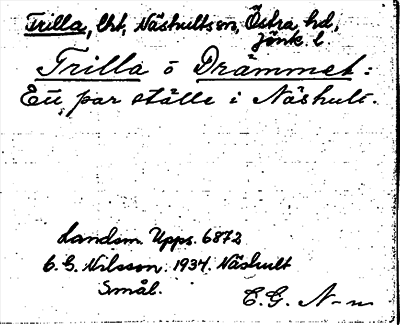 Trilla, tht, Näshultssn, Östra hd,
Jönk. l
Trilla o Drämmet:
Ett par ställe i Näshult.
Landsm. Upps. 6872
C. G. Nilsson. 1934. Näshult
Smål.
C. G. N-n